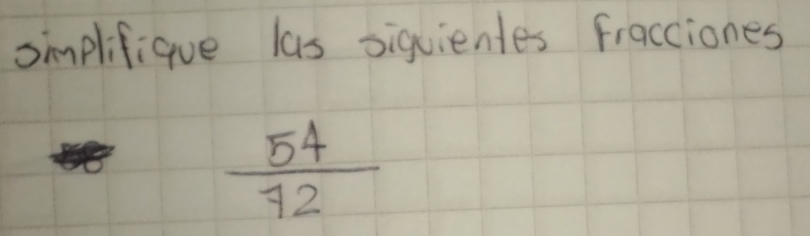 simplifique las siguientes fracciones
54
72